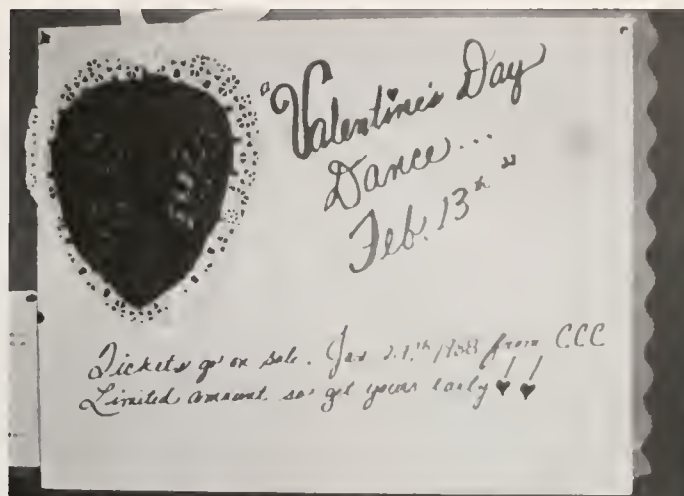 "Valentine's Day
Dance...
Feb. 13th"
Tickets go on sale. Jan 1988 from CCC
Limited amount so get yours early!!